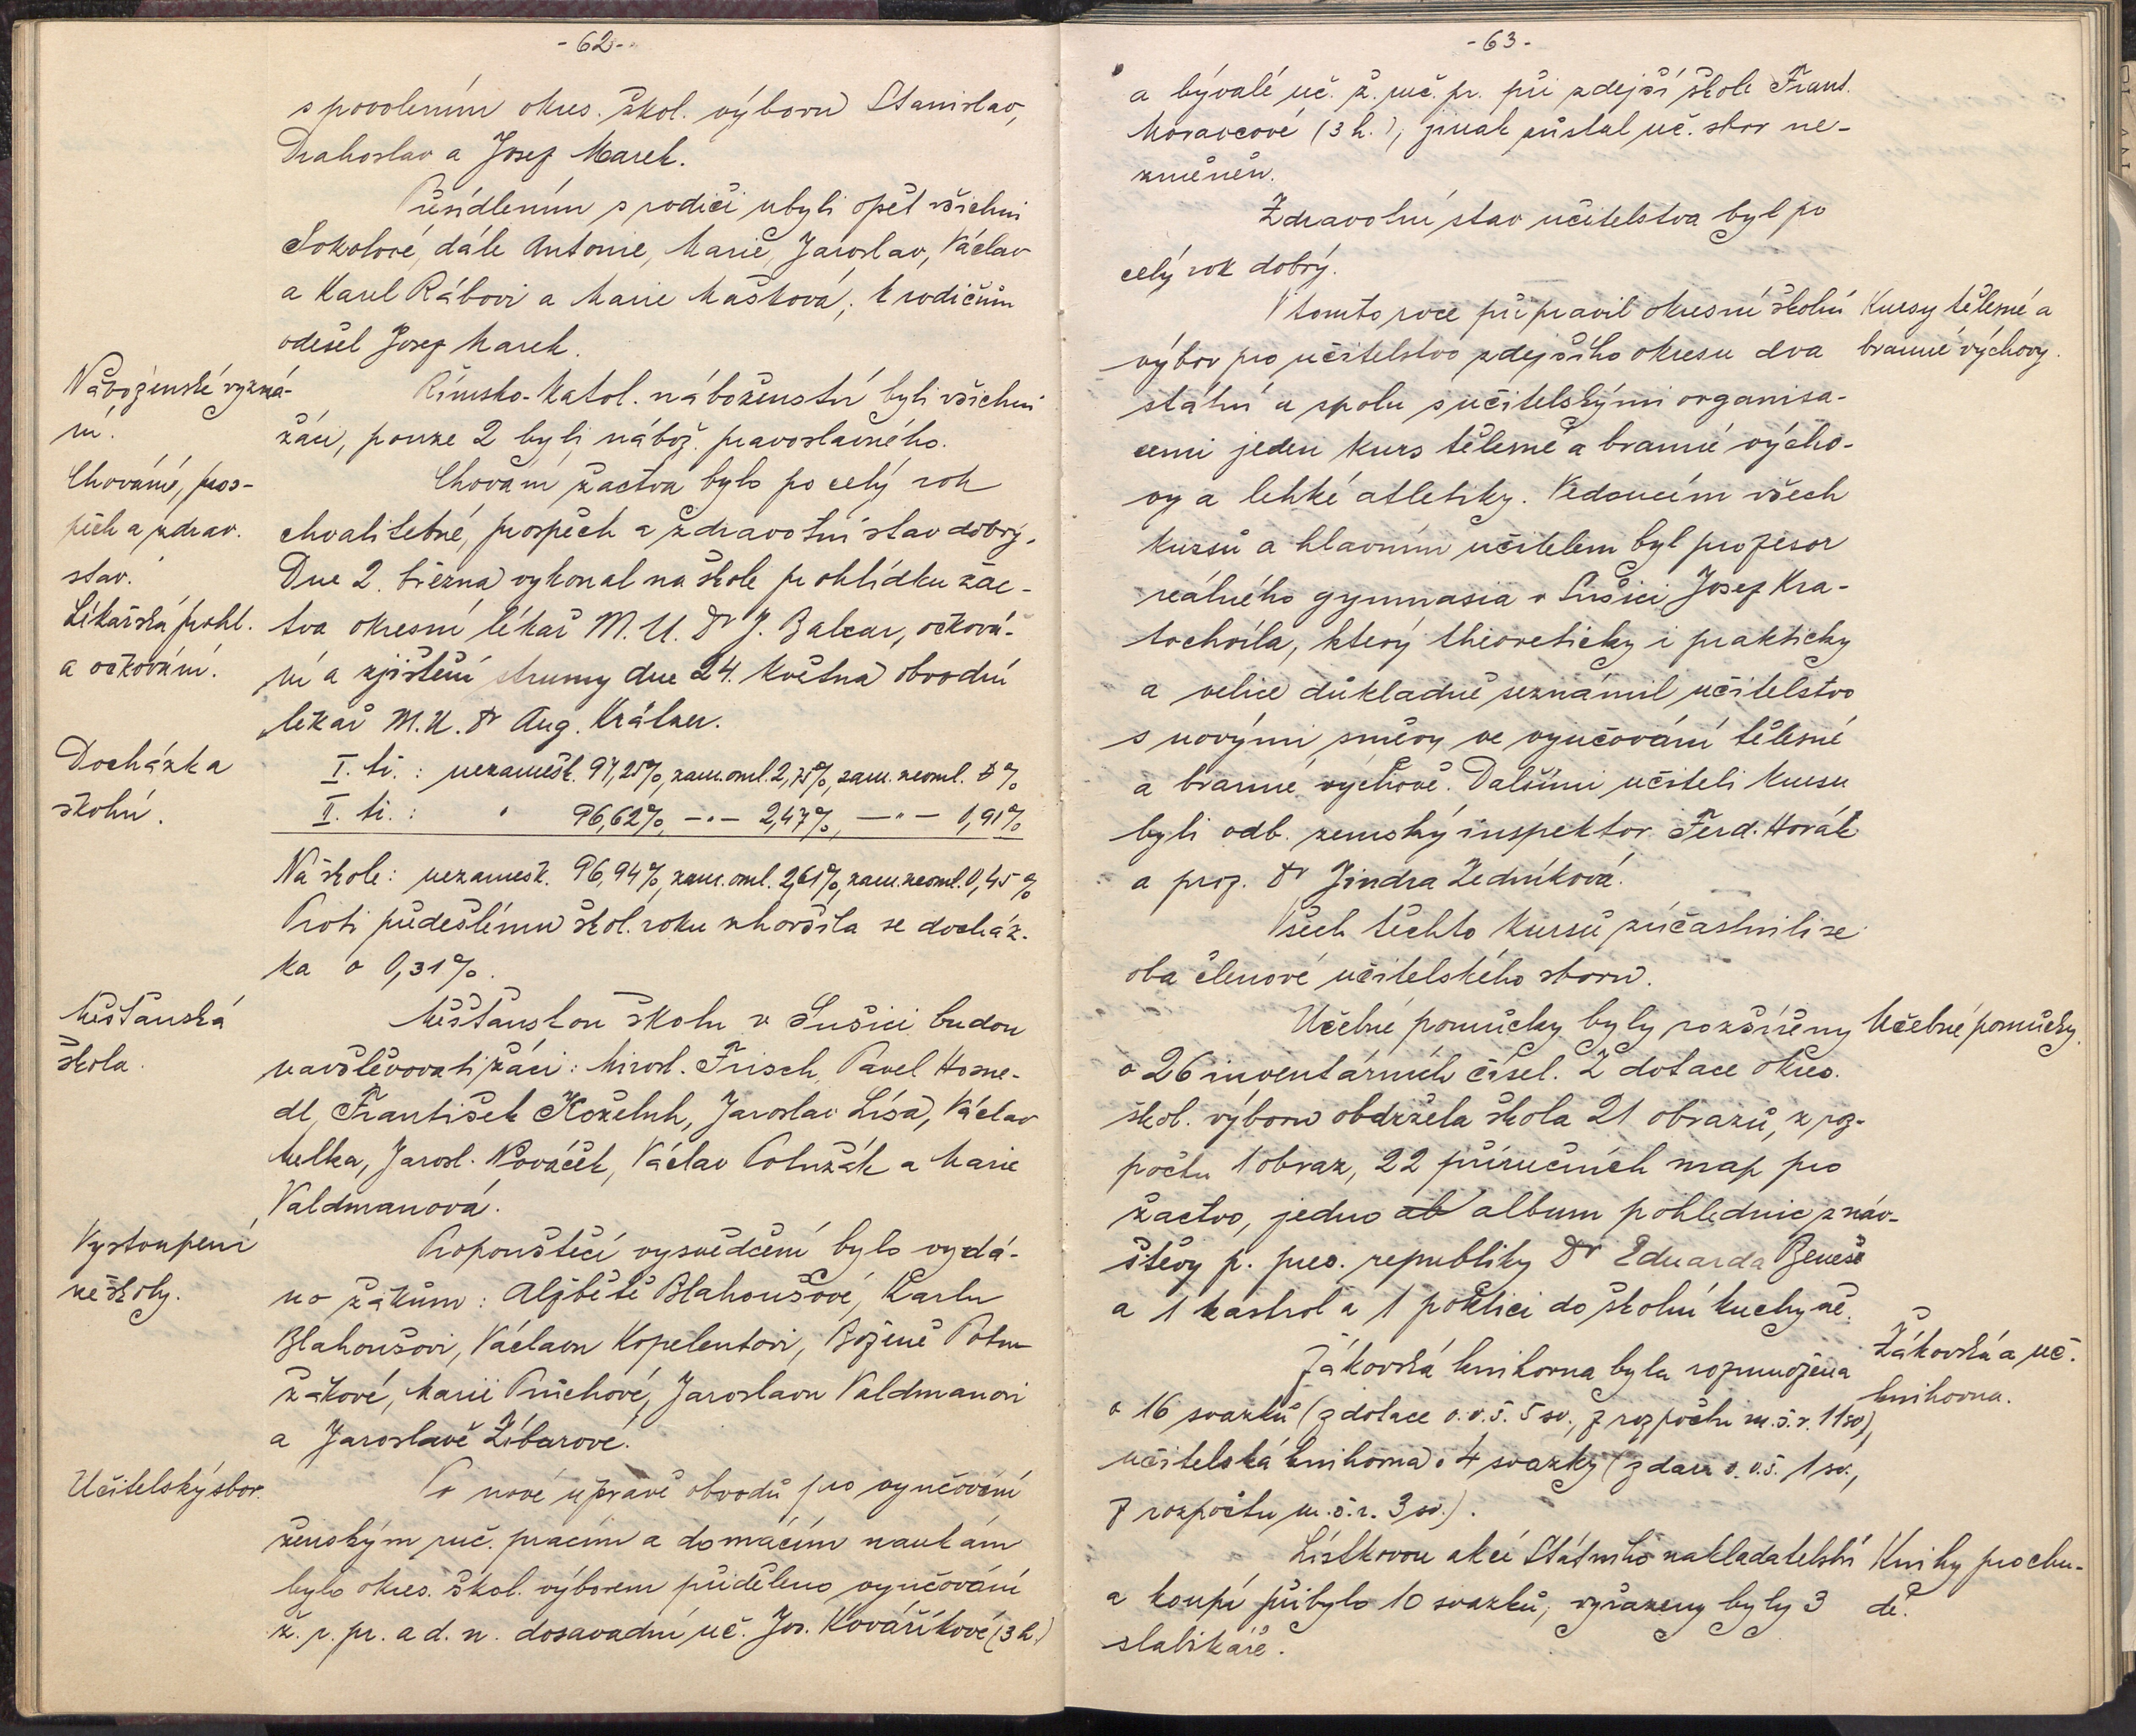 -62-
s povolením okres. škol. výboru Stanislav,
Drahoslav a Josef Marek.
Přesídlením s rodiči ubyli opět všichni
Sokolové, dále Antonie, Marie, Jaroslav, Václav
a Karel Rábovi a Marie Mašková; k rodičům
odešel Josef Marek.
Náboženské vyzná-
ní.
Římsko-katol. náboženství byli všichni
žáci, pouze 2 byli nábož. pravoslavného.
Chování, pros-
pěch a zdrav.
stav.
Chování žactva bylo po celý rok
chvalitebné, prospěch a zdravotní stav dobrý.
Lékařská prohl.
a očkování.
Dne 2. března vykonal na škole prohlídku žac-
tva okresní lékař M. U. Dr J. Balcar, očková-
ní a zjištění strumy dne 24. května obvodní
lékař M. U. Dr Aug. Králner.
Docházka
školní.
I. tř. : nezamešk. 97,25%, zam. oml. 2,75%, zam. neoml. 0%
II. tř. : " 96,62%, -"- 2,47%, -"- 0,91%
Na škole: nezamešk. 96,94%, zam. oml. 2,61%, zam. neoml. 0,45%
Proti předešlému škol. roku zhoršila se docház-
ka o 0,31%.
Měšťanská
škola.
Měšťanskou školu v Sušici budou
navštěvovati žáci: Mirosl. Frisch, Pavel Hosne-
dl, František Koželuh, Jaroslav Lísa, Václav
Melka, Jarosl. Nováček, Václav Potužák a Marie
Valdmanová.
Vystoupení
ze školy.
Propouštěcí vysvědčení bylo vydá-
no žákům: Alžbětě Blahoušové, Karlu
Blahoušovi, Václavu Kopelentovi, Boženě Potu-
žákové, Marii Průchové, Jaroslavu Valdmanovi
a Jaroslavě Žíbarové.
Učitelský sbor.
Po nové úpravě obvodů pro vyučování
ženským ruč. pracím a domácím naukám
bylo okres. škol. výborem přiděleno vyučování
ž. r. pr. a d. n. dosavadní uč. Jos. Kováříkové (3 h.)
-63-
a bývalé uč. ž. ruč. pr. při zdejší škole Frant.
Moravcové (3 h.), jinak zůstal uč. sbor ne-
změněn.
Zdravotní stav učitelstva byl po
celý rok dobrý.
Kursy tělesné a
branné výchovy.
V tomto roce připravil okresní školní
výbor pro učitelstvo zdejšího okresu dva
státní a spolu s učitelskými organisa-
cemi jeden kurs tělesné a branné výcho-
vy a lehké atletiky. Vedoucím všech
kursů a hlavním učitelem byl profesor
reálného gymnasia v Sušici Josef Kra-
tochvíla, který theoreticky i prakticky
a velice důkladně seznámil učitelstvo
s novými směry ve vyučování tělesné
a branné výchově. Dalšími učiteli kursu
byli odb. zemský inspektor Ferd. Horák
a prof. Dr Jindra Zedníková.
Všech těchto kursů zúčastnili se
oba členové učitelského sboru.
Učebné pomůcky.
Učebné pomůcky byly rozšířeny
o 26 inventárních čísel. Z dotace okres.
škol. výboru obdržela škola 21 obrazů, z roz-
počtu 1 obraz, 22 příručních map pro
žactvo, jedno ab album pohlednic z náv-
štěvy p. pres. republiky Dr Eduarda Beneše
a 1 kastrol a 1 poklici do školní kuchyně.
Žákovská a uč.
knihovna.
Žákovská knihovna byla rozmnožena
o 16 svazků (z dotace o. v. š. 5 sv., z rozpočtu m. š. r. 11 sv.),
učitelská knihovna o 4 svazky (z daru o. v. š. 1 sv.,
z rozpočtu m. š. r. 3 sv.).
Knihy pro chu-
dé.
Lístkovou akcí Státního nakladatelství
a koupí přibylo 10 svazků, vyřazeny byly 3
slabikáře.